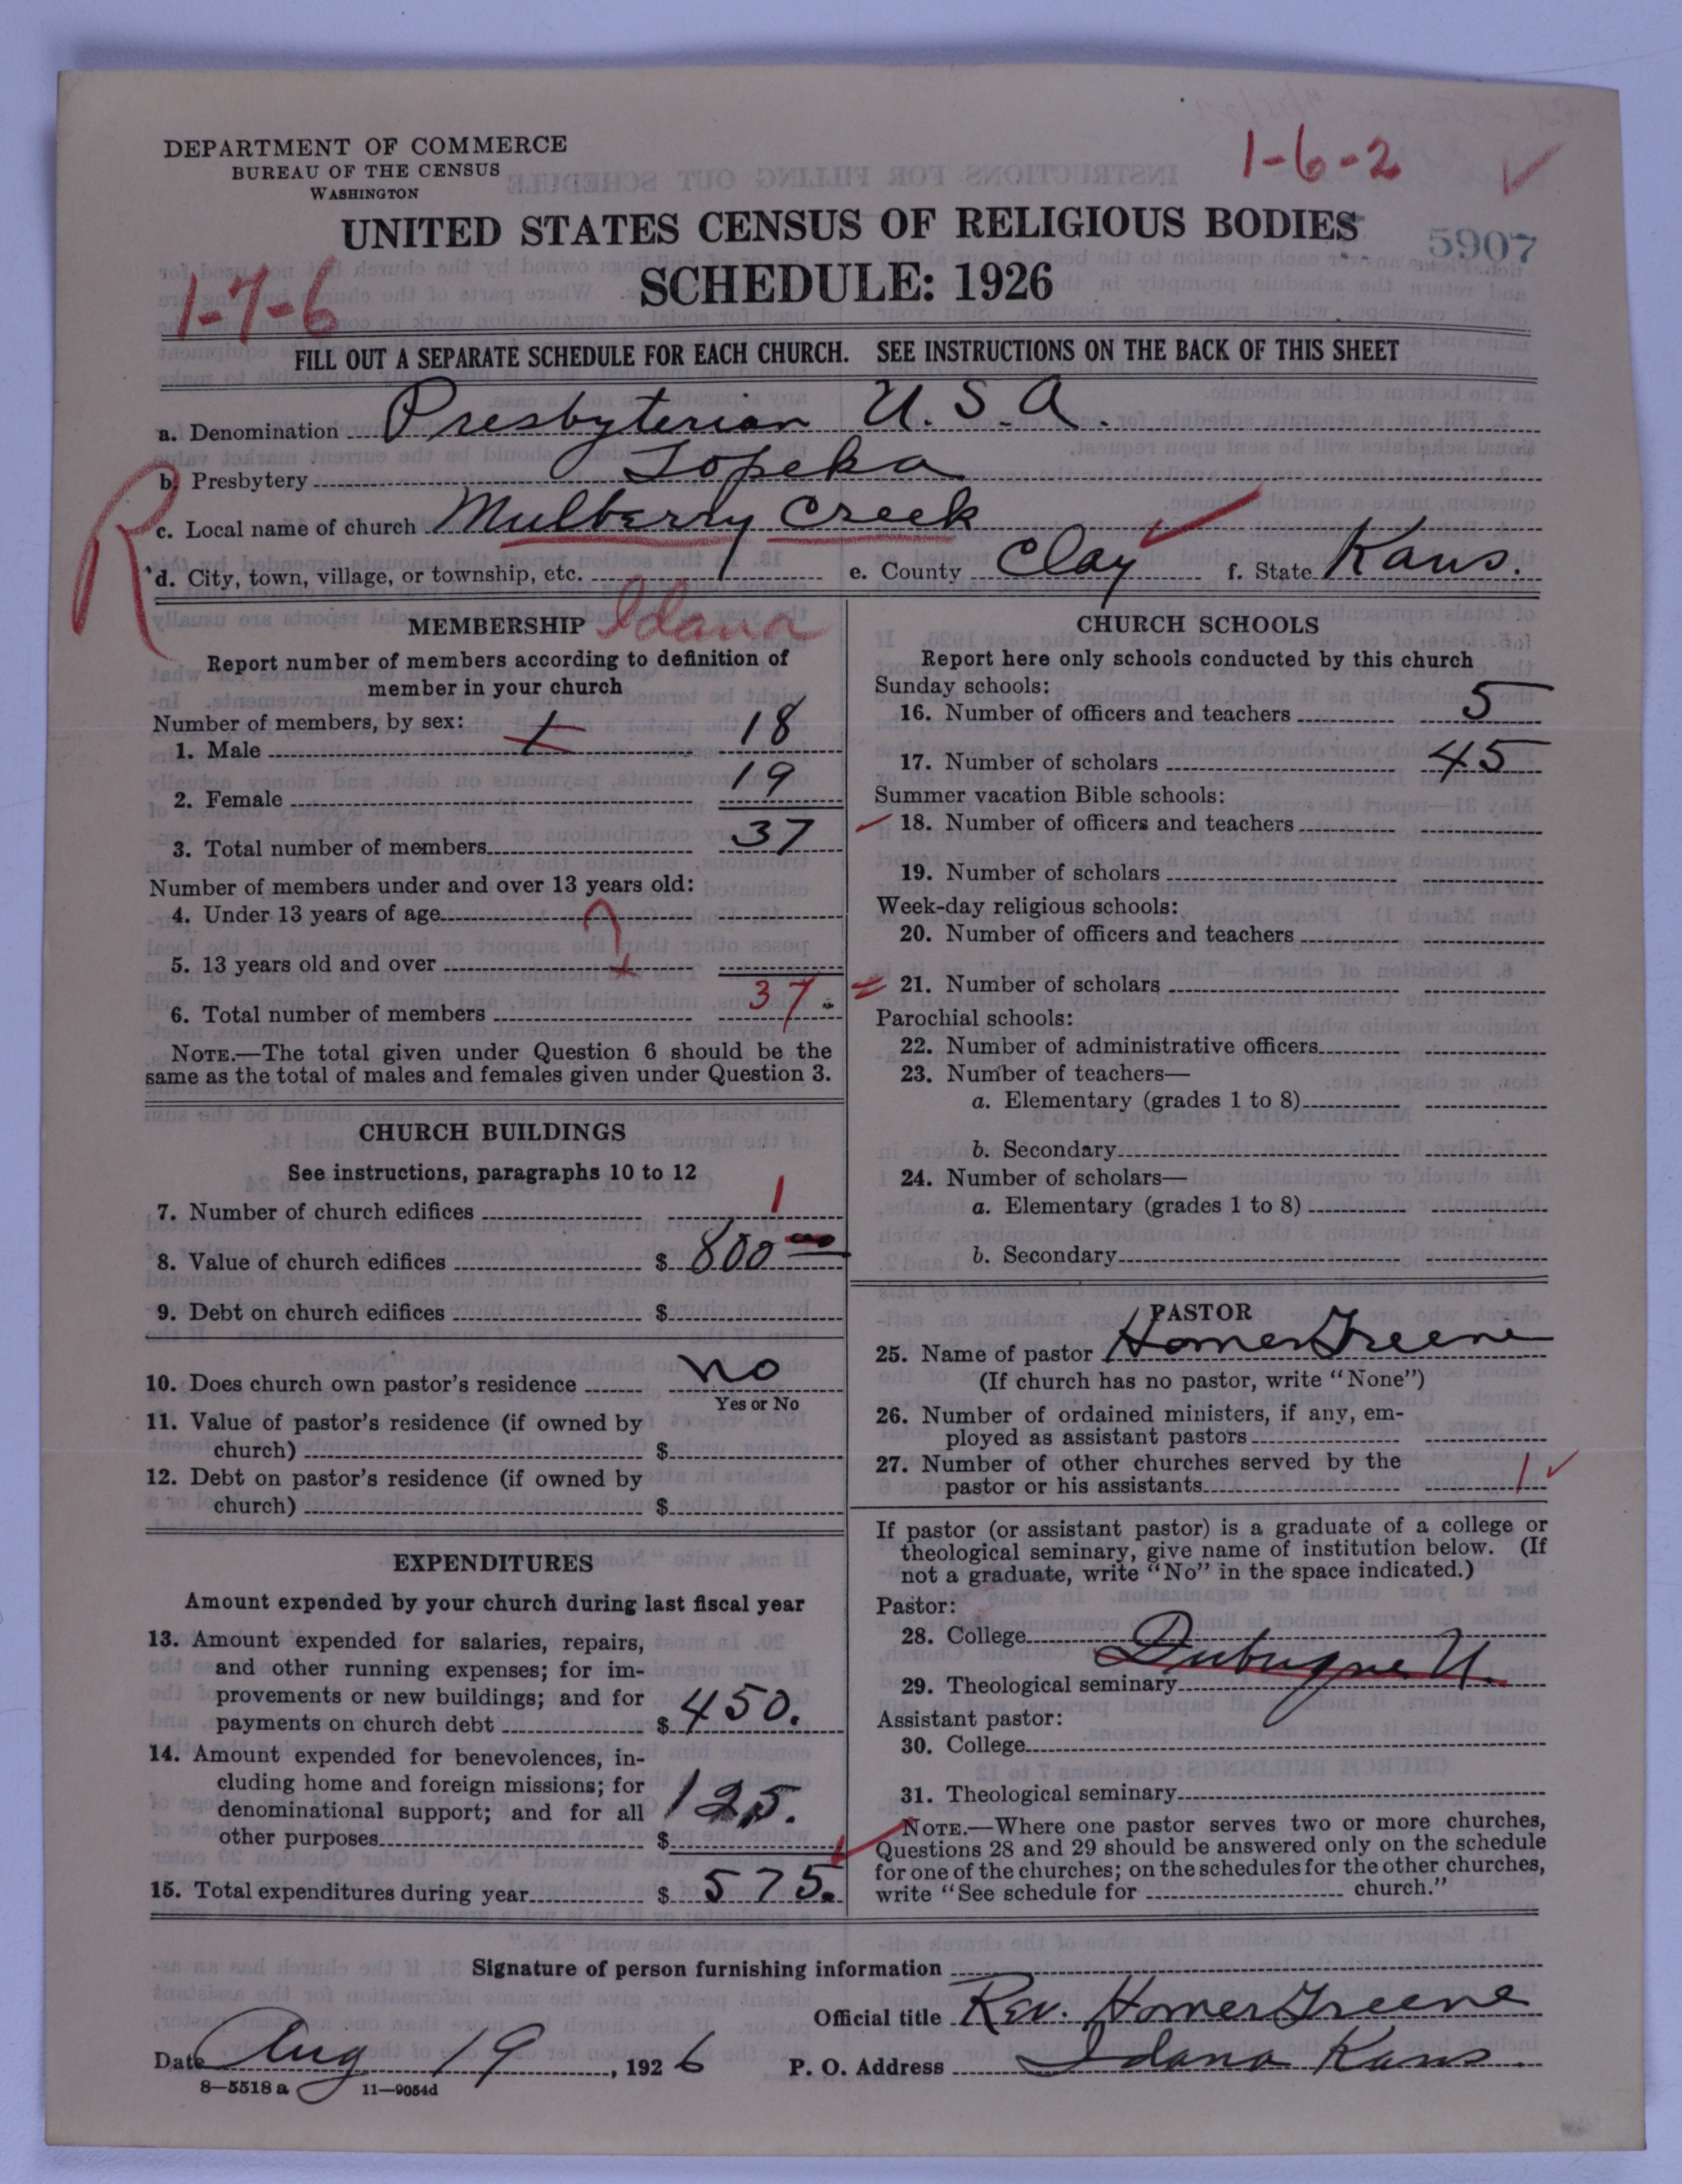 1-6-2
DEPARTMENT OF COMMERCE
BUREAU OF THE CENSUS
WASHINGTON
UNITED STATES CENSUS OF RELIGIOUS BODIES
5907
SCHEDULE: 1926
1-7-6
FILL OUT A SEPARATE SCHEDULE FOR EACH CHURCH. SEE INSTRUCTIONS ON THE BACK OF THIS SHEET
a. Denomination Presbyterian U.S.A.
b. Presbytery Topeka
R
c. Local name of church Mulberry Creek
d. City, town, village, or township, etc. e. County Clay f. State Kans.
Idana
MEMBERSHIP
Report number of members according to definition of
member in your church
Number of members, by sex:
1. Male 18
2. Female 19
3. Total number of members 37
Number of members under and over 13 years old:
4. Under 13 years of age
5. 13 years old and over
6. Total number of members 37.
NOTE.—The total given under Question 6 should be the
same as the total of males and females given under Question 3.
CHURCH BUILDINGS
See instructions, paragraphs 10 to 12
7. Number of church edifices 1
8. Value of church edifices $ 800 00
9. Debt on church edifices $
10. Does church own pastor's residence no
Yes or No
11. Value of pastor's residence (if owned by
church) $
12. Debt on pastor's residence (if owned by
church) $
EXPENDITURES
Amount expended by your church during last fiscal year
13. Amount expended for salaries, repairs,
and other running expenses; for im-
provements or new buildings; and for
payments on church debt $ 450.
14. Amount expended for benevolences, in-
cluding home and foreign missions; for
denominational support; and for all
other purposes $ 125.
15. Total expenditures during year $ 575.
CHURCH SCHOOLS
Report here only schools conducted by this church
Sunday schools:
16. Number of officers and teachers 5
17. Number of scholars 45
Summer vacation Bible schools:
18. Number of officers and teachers
19. Number of scholars
Week-day religious schools:
20. Number of officers and teachers
21. Number of scholars
Parochial schools:
22. Number of administrative officers
23. Number of teachers—
a. Elementary (grades 1 to 8)
b. Secondary
24. Number of scholars—
a. Elementary (grades 1 to 8)
b. Secondary
PASTOR
25. Name of pastor Homer Greene
(If church has no pastor, write "None")
26. Number of ordained ministers, if any, em-
ployed as assistant pastors
27. Number of other churches served by the
pastor or his assistants 1
If pastor (or assistant pastor) is a graduate of a college or
theological seminary, give name of institution below. (If
not a graduate, write "No" in the space indicated.)
Pastor:
28. College
Dubuque U.
29. Theological seminary
Assistant pastor:
30. College
31. Theological seminary
NOTE.—Where one pastor serves two or more churches,
Questions 28 and 29 should be answered only on the schedule
for one of the churches; on the schedules for the other churches,
write "See schedule for church."
Signature of person furnishing information
Official title Rev. Homer Greene
Date Aug 19, 1926 P. O. Address Idana Kans.
8—5518 a 11—9054d